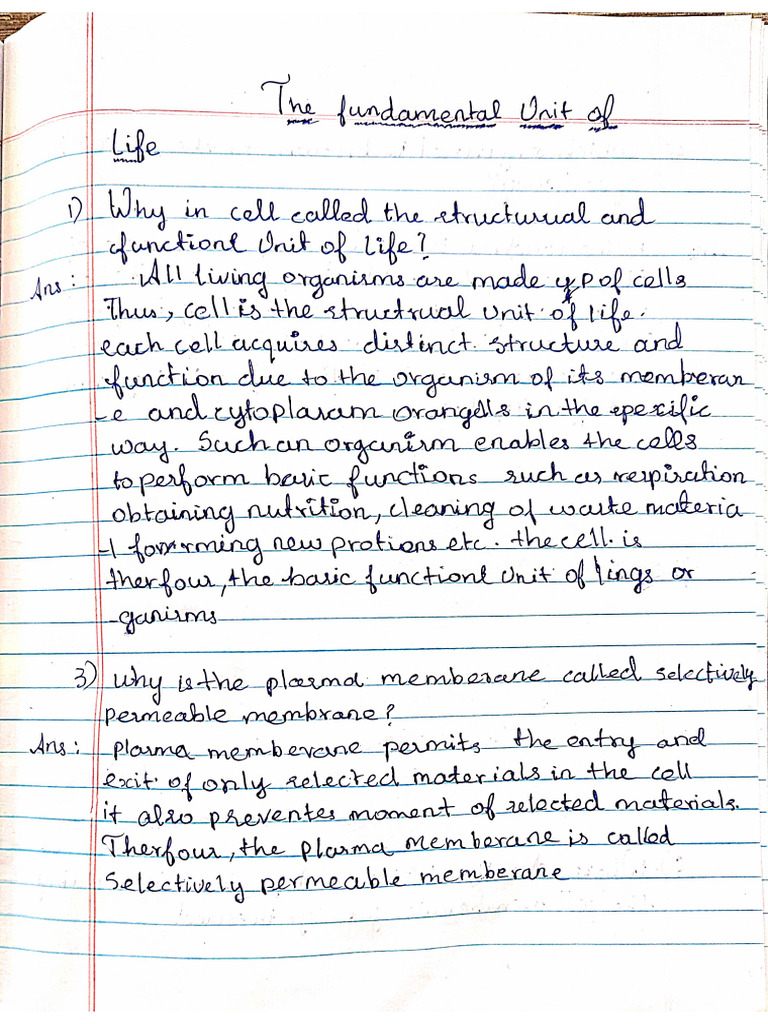 The fundamental Unit of
Life
1) Why in cell called the structurual and
functionl Unit of life?
Ans: All living organisms are made up of cells
Thus, cell is the structrual unit of life.
each cell acquires distinct structure and
function due to the organism of its memberan
-e and cytoplasam orangells in the specific
way. Such an organism enables the cells
to perform basic functions such as respiration
obtaining nutrition, cleaning of waste materia
-l forming new protions etc. the cell is
therfour, the basic functionl Unit of lings or
-ganisms
3) Why is the plasma memberane called selectively
permeable membrane?
Ans: plasma memberane permits the entry and
exit of only selected materials in the cell
it also preventes moment of selected materials.
Therfour, the plasma memberane is called
Selectively permeable memberane